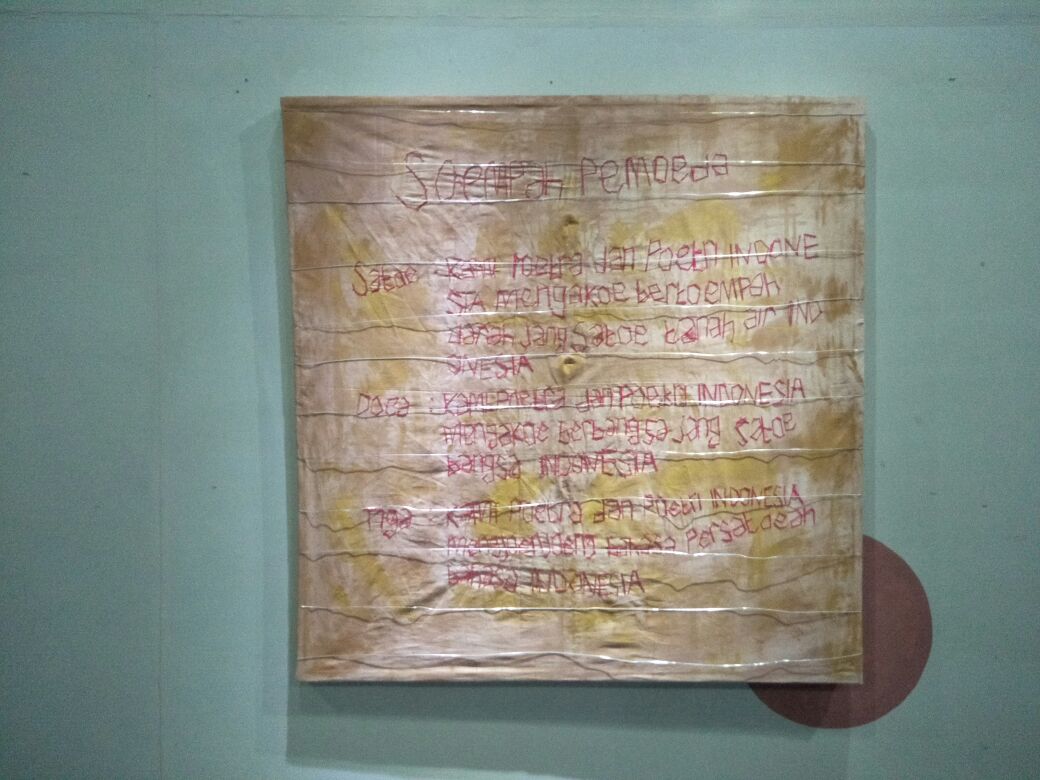 Soempah Pemoeda
Satoe : Kami Poetra dan Poetri INDONE
SIA mengakoe bertoempah
darah jang Satoe tanah air IND
ONESIA
Doea : Kami Poetra dan Poetri INDONESIA
mengakoe berbangsa jang satoe
bangsa INDONESIA
Tiga : Kami Poetra dan Poetri INDONESIA
bahasa Persatoean
bahasa INDONESIA